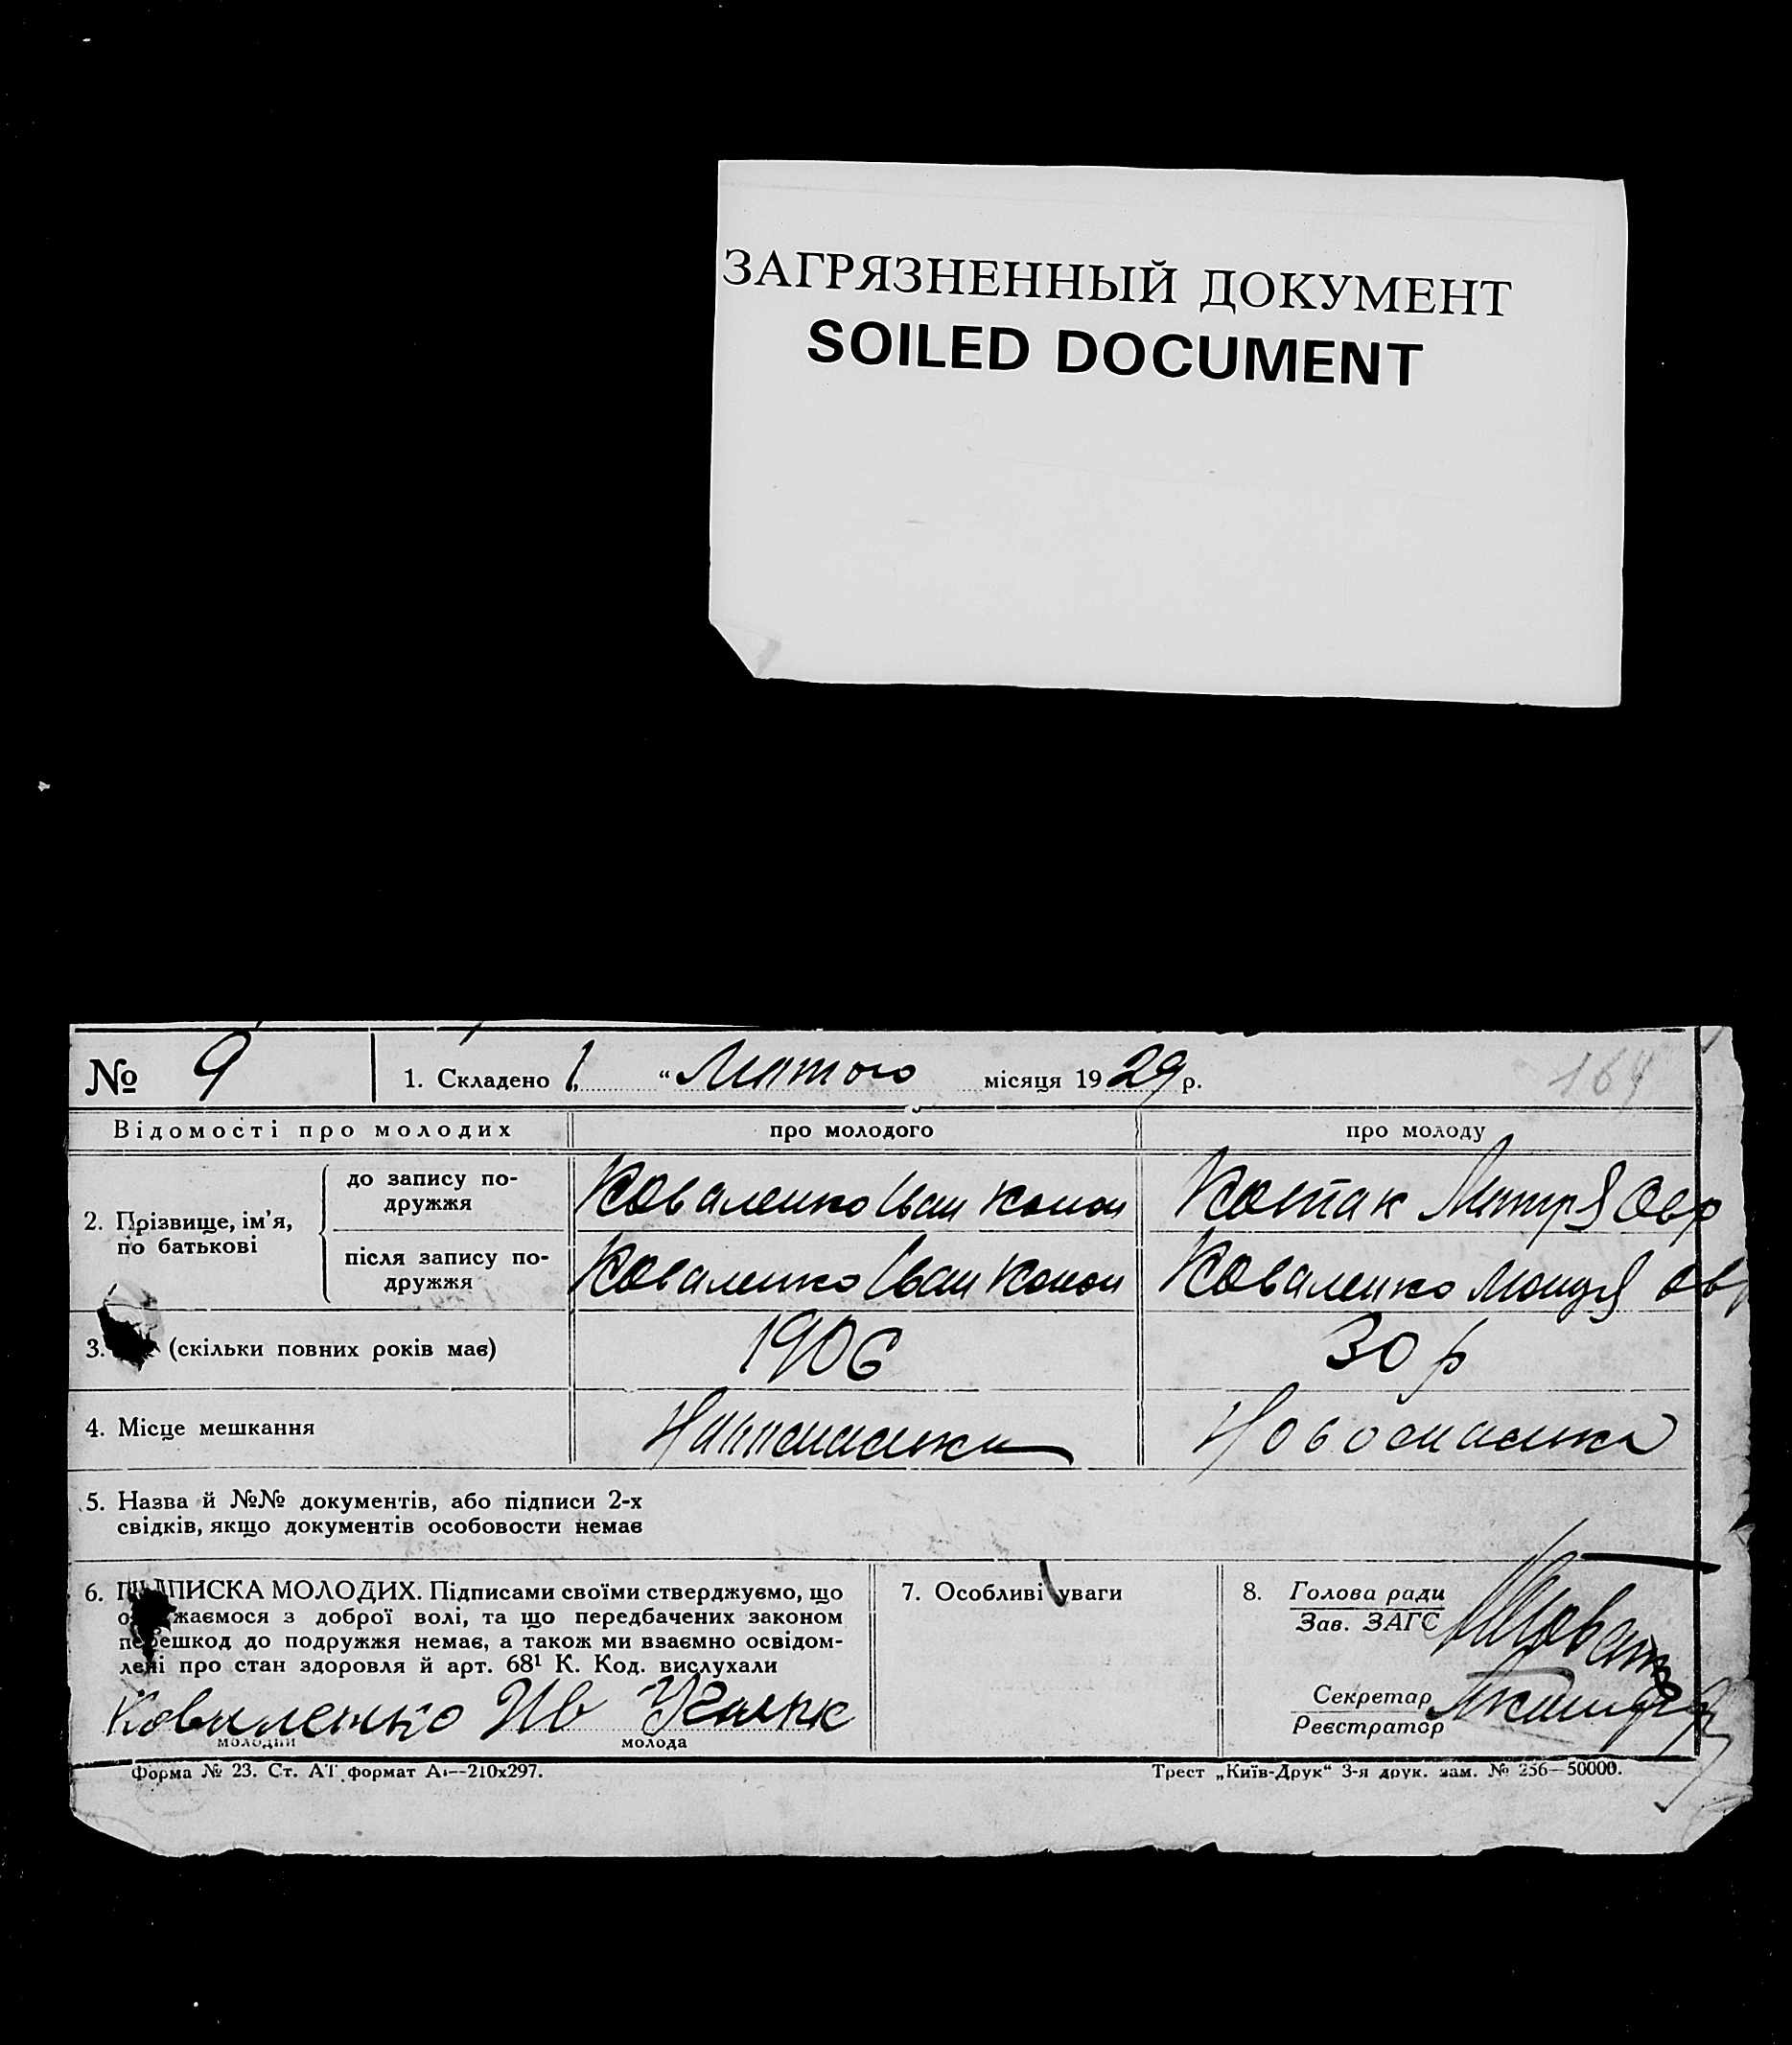 ЗАГРЯЗНЕННЫЙ ДОКУМЕНТ
SOILED DOCUMENT
№ 9
1. Складено 1 „ “ Лютого місяця 1929 р.
164
Відомості про молодих
про молодого
про молоду
2. Прізвище, ім’я, по батькові
до запису подружжя
Коваленко Іван Конон
Котак Мотря Овр
після запису подружжя
Коваленко Іван Конон
Коваленко Мотря Ов
3. (скільки повних років має)
1906
30 р
4. Місце мешкання
Новоспаська
5. Назва й №№ документів, або підписи 2-х
свідків, якщо документів особовости немає
6. ПІДПИСКА МОЛОДИХ. Підписами своїми стверджуємо, що
одружаємося з доброї волі, та що передбачених законом
перешкод до подружжя немає, а також ми взаємно освідом-
лені про стан здоров’я й арт. 68¹ К. Код. вислухали
Коваленко Ив
молодий
молода
7. Особливі уваги
8. Голова ради
Зав. ЗАГС
Секретар
Реєстратор
Форма № 23. Ст. АТ формат А₄—210х297.
Трест „Київ-Друк“ 3-я друк. зам. № 256—50000.